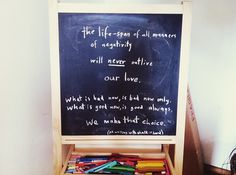 the life-span of all manners
of negativity
will never outlive
our love.
what is bad now, is bad now only.
what is good now, is good always.
we make that choice.